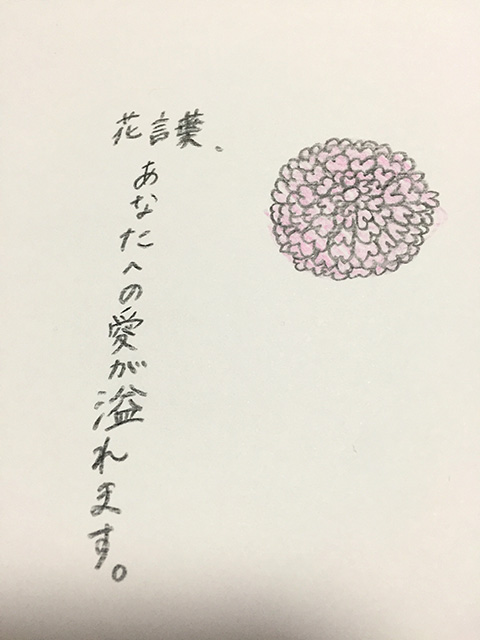 花言葉、
あなたへの愛が溢れます。